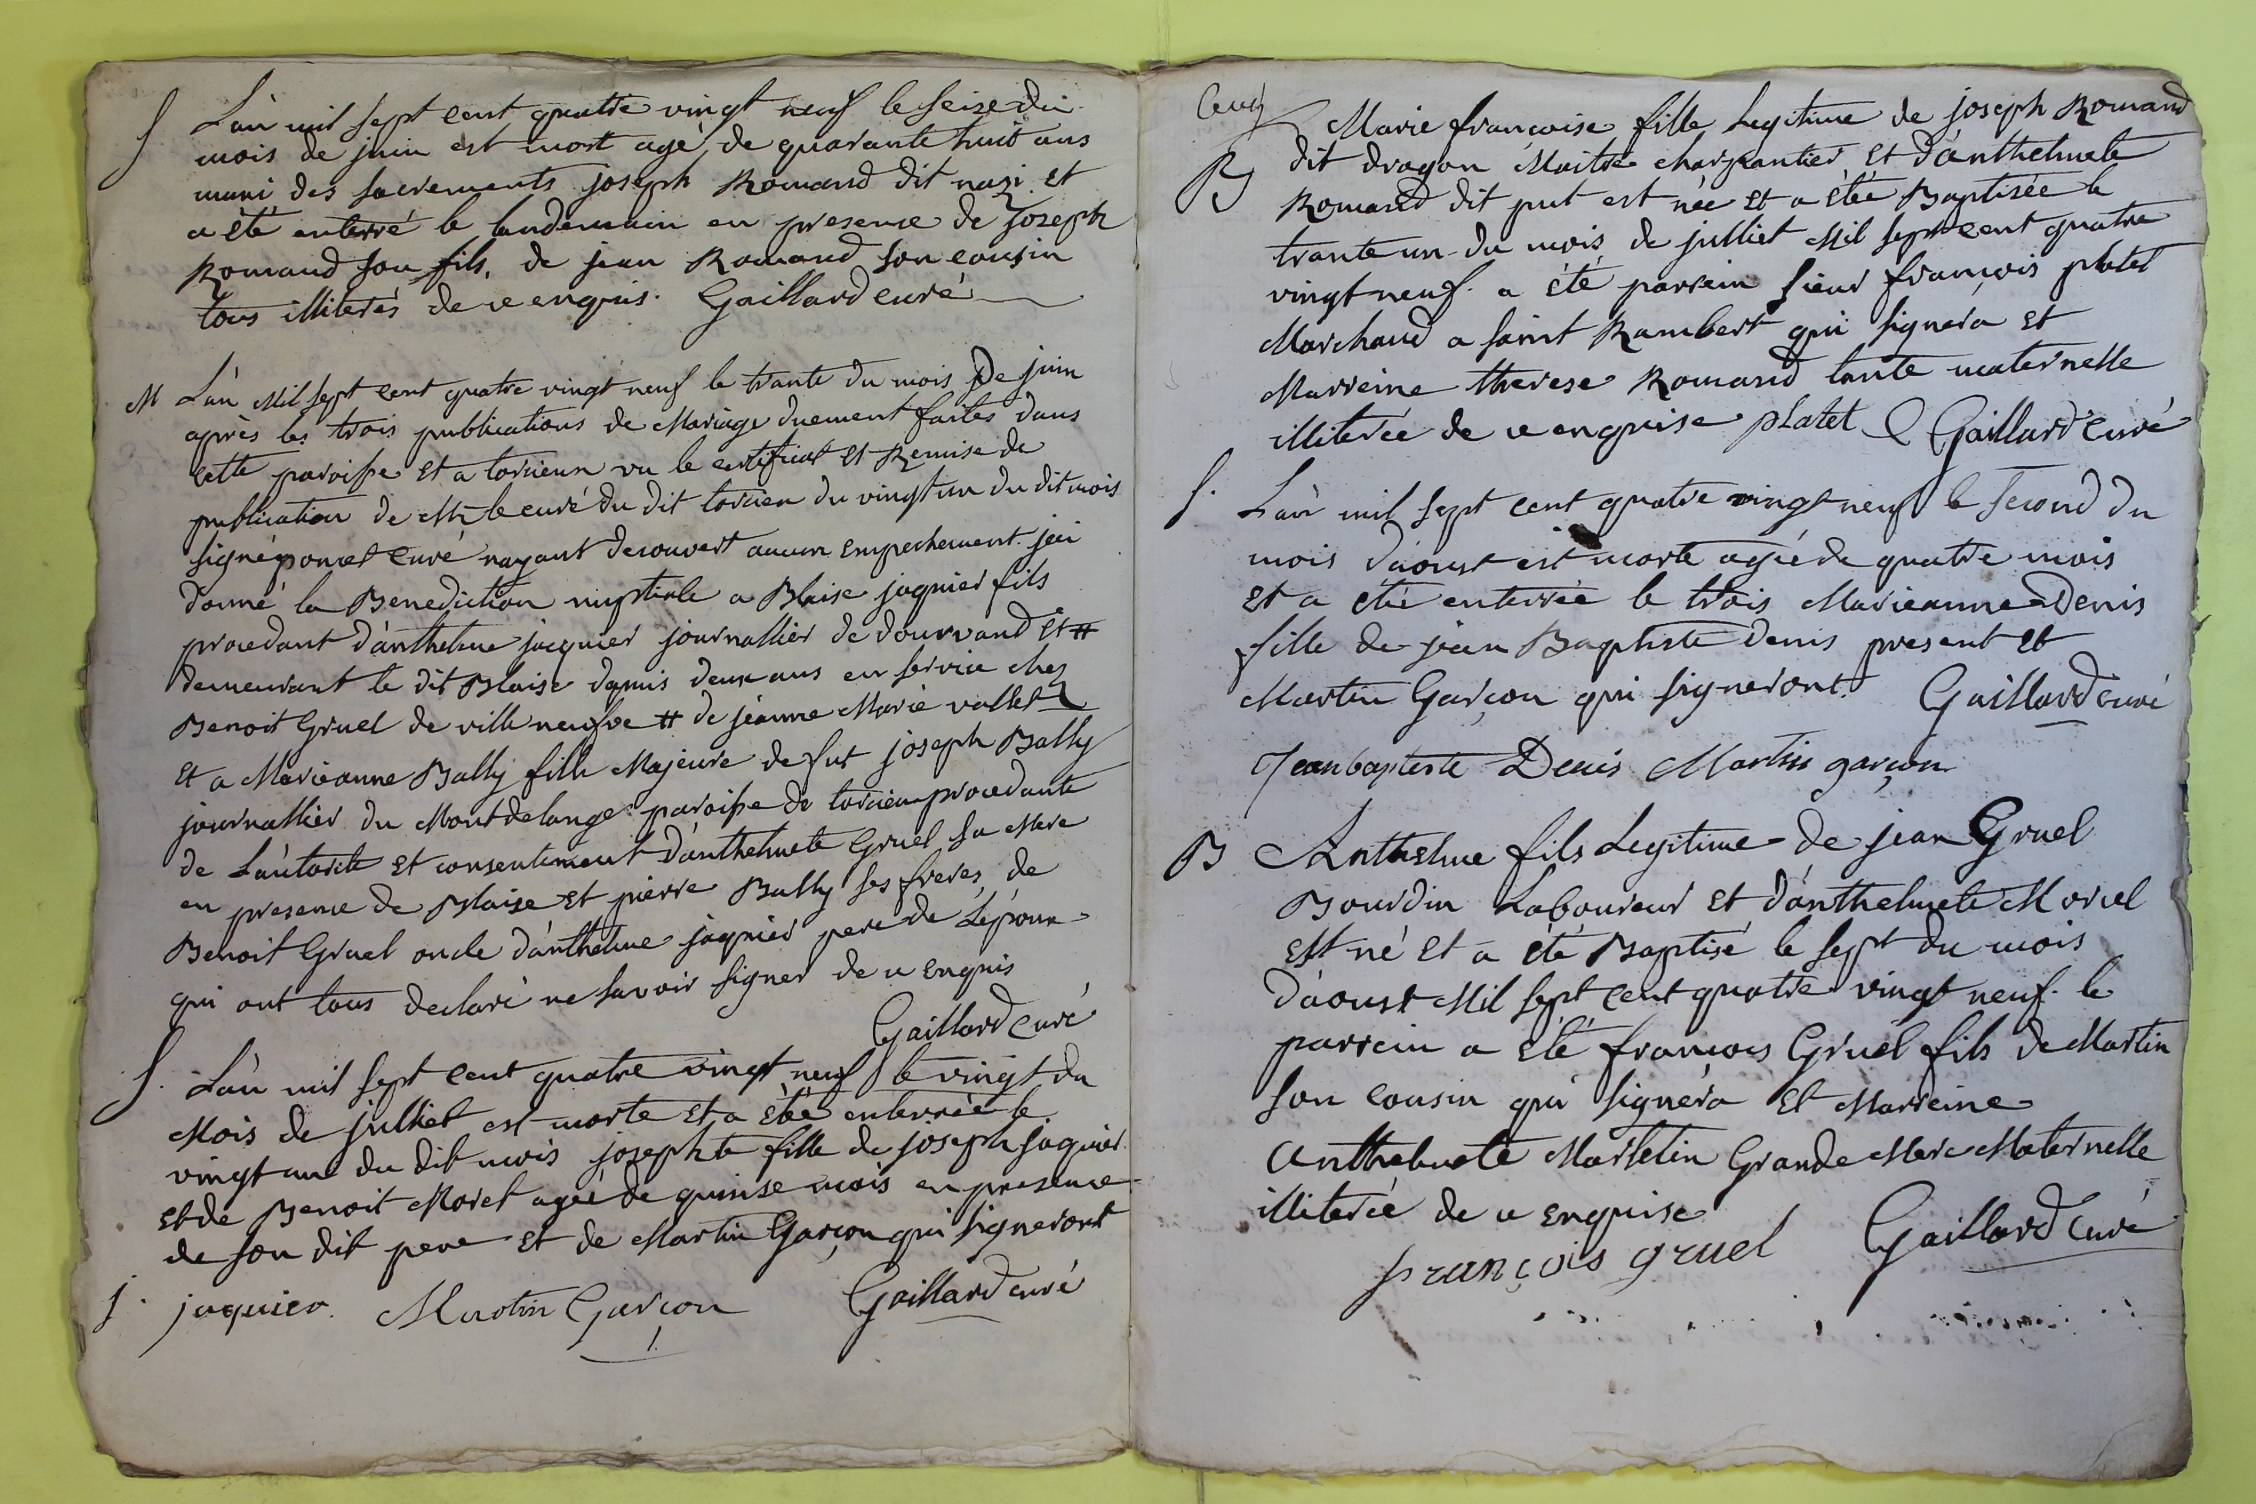 S L'àn mil sept cent quatre vingt neuf le seize du
mois de juin est mort agé de quarante huit ans
muni des sacrements joseph Romand dit nazi et
a été enterré le landemain en presence de joseph
Romand son fils, de jean Romand son cousin
tous illiterés de ce enquis. Gaillard curé
M L'àn Mil sept cent quatre vingt neuf le trante du mois De juin
après les trois publications de Mariage duement faites dans
cette paroisse et a torcieux vu le certificat et Remise de
publication de Mr le curé du dit torcieu du vingt un du dit mois
signé poncet curé nayant decouvert aucun empechement jai
donné la Benediction nuptiale a Blaise jaquier fils
procedant d'anthelme jacquier journallier de dourvand et #
demeurant le dit Blaise depuis deux ans en service chez
Benoit Gruel de ville neufve # de jeanne Marie vallet
et a Marieanne Bally fille Majeure de fut joseph Bally
journallier du Montdelange paroisse de torcieu procedante
de L'autorité et consentement d'anthelmete Gruel sa Mere
en presence de Blaise et pierre Bally ses freres, de
Benoit Gruel oncle d'anthelme jaquier pere de Lépoux
qui ont tous declaré ne savoir signer de ce enquis
Gaillard curé
S. L'àn mil sept cent quatre vingt neuf le vingt du
Mois de julliet est morte et a étée enterrée le
vingt une du dit mois josephte fille de joseph jaquier
et de Benoit Moret agée de quinse mois en presence
de son dit pere et de Martin Garçon qui signeront
J. jaquier. Martin Garçon Gaillard curé
B Marie françoise fille Legitime de joseph Romand
dit dragon Maitre charpantier et d'anthelmete
Romand dit put est née et a étée Baptisée le
trante un du mois de julliet Mil sept cent quatre
vingt neuf. a été parrein sieur françois platet
Marchand a saint Rambert qui signera et
Marreine therese Romand tante maternelle
illiterée de ce enquise platet Gaillard curé
S. L'àn mil sept cent quatre vingt neuf le second du
mois d'aoust est morte agée de quatre mois
et a étée enterrée le trois Marieanne Denis
fille de jean Baptiste denis present et
Martin Garçon qui signeront. Gaillard curé
Jeanbaptiste Denis Martin garçon
B Anthelme fils Legitime de jean Gruel
Bourdin Laboureur et d'anthelmete Morcel
est né et a été Baptisé le sept du mois
d'aoust Mil sept cent quatre vingt neuf. le
parrein a été françois Gruel fils de Martin
son cousin qui signera et Marreine
anthelmete Martelin Grande Mere Maternelle
illiterée de ce enquise
françois gruel Gaillard curé